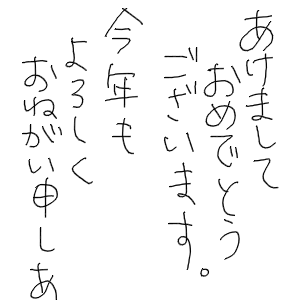 あけまして
おめでとう
ございます。
今年も
よろしく
おねがい申しあ